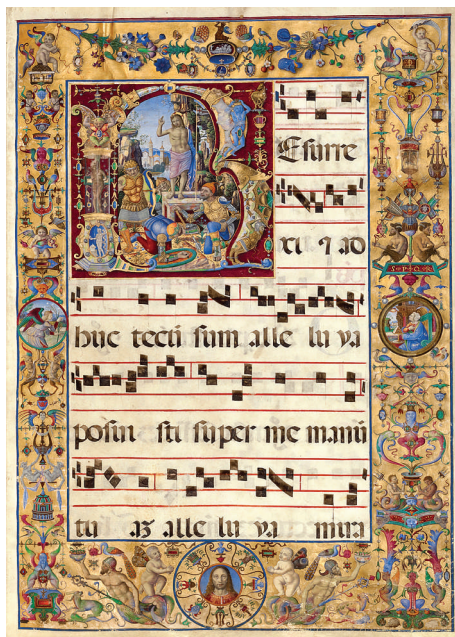 REsurre
xi ⁊ ad
huc tecū sum alle lu ya
posui sti super me manū
tu aʒ alle lu ya mira
S·P·Q·R